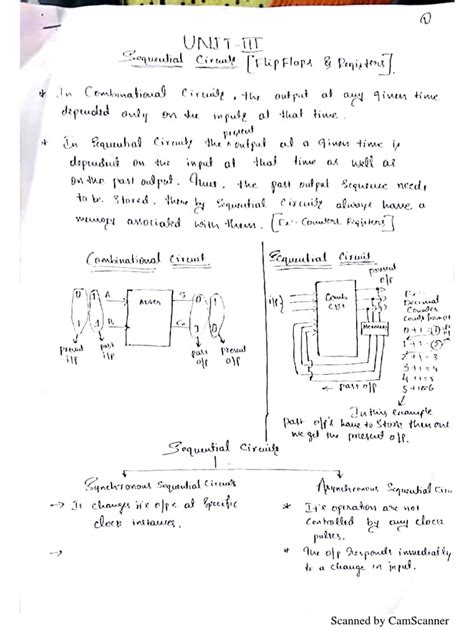 ①
UNIT-III
Sequential Circuits [FlipFlops & Registers].
* In Combinational Circuits, the output at any given time
depended only on the inputs at that time.
* In Sequential Circuits the present output at a given time is
dependent on the input at that time as well as
on the past output. Thus, the past output sequence needs
to be stored. there by Sequential Circuits always have a
memory associated with them. [Ex:- Counters, Registers]
Combinational Circuit
Sequential Circuit
A
B
Adder
S
Co
present i/p
past i/p
past o/p
present o/p
i/p
present o/p
Memory
← past o/p
Ex:-
Decimal
Counter
0+1
1+1
2+1-3
3+1=4
4+1=5
In this example
past o/p's have to store then one
we get the present o/p.
Sequential Circuits
Synchronous Sequential Circuits
Asynchronous Sequential Circu
→ It changes it's o/ps at Specific
clock instances.
→
* It's operation are not
controlled by any clock
pulses.
* The o/p responds immediatly
to a change in input.
Scanned by CamScanner